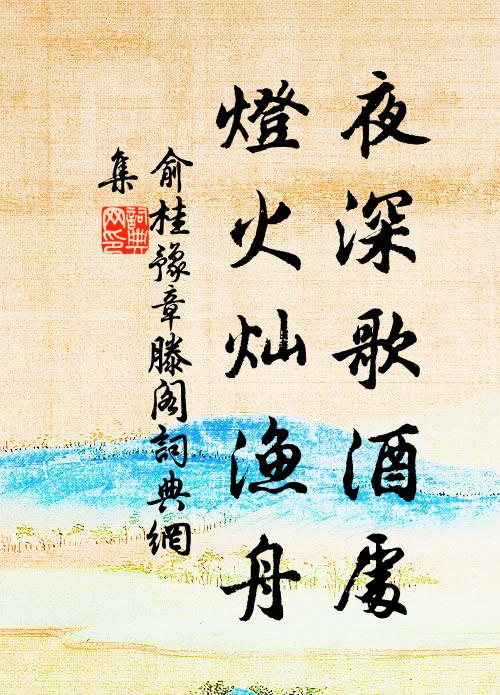 夜深歌酒處
燈火灿漁舟
俞桂豫章滕阁詞典網
集
詞典网印